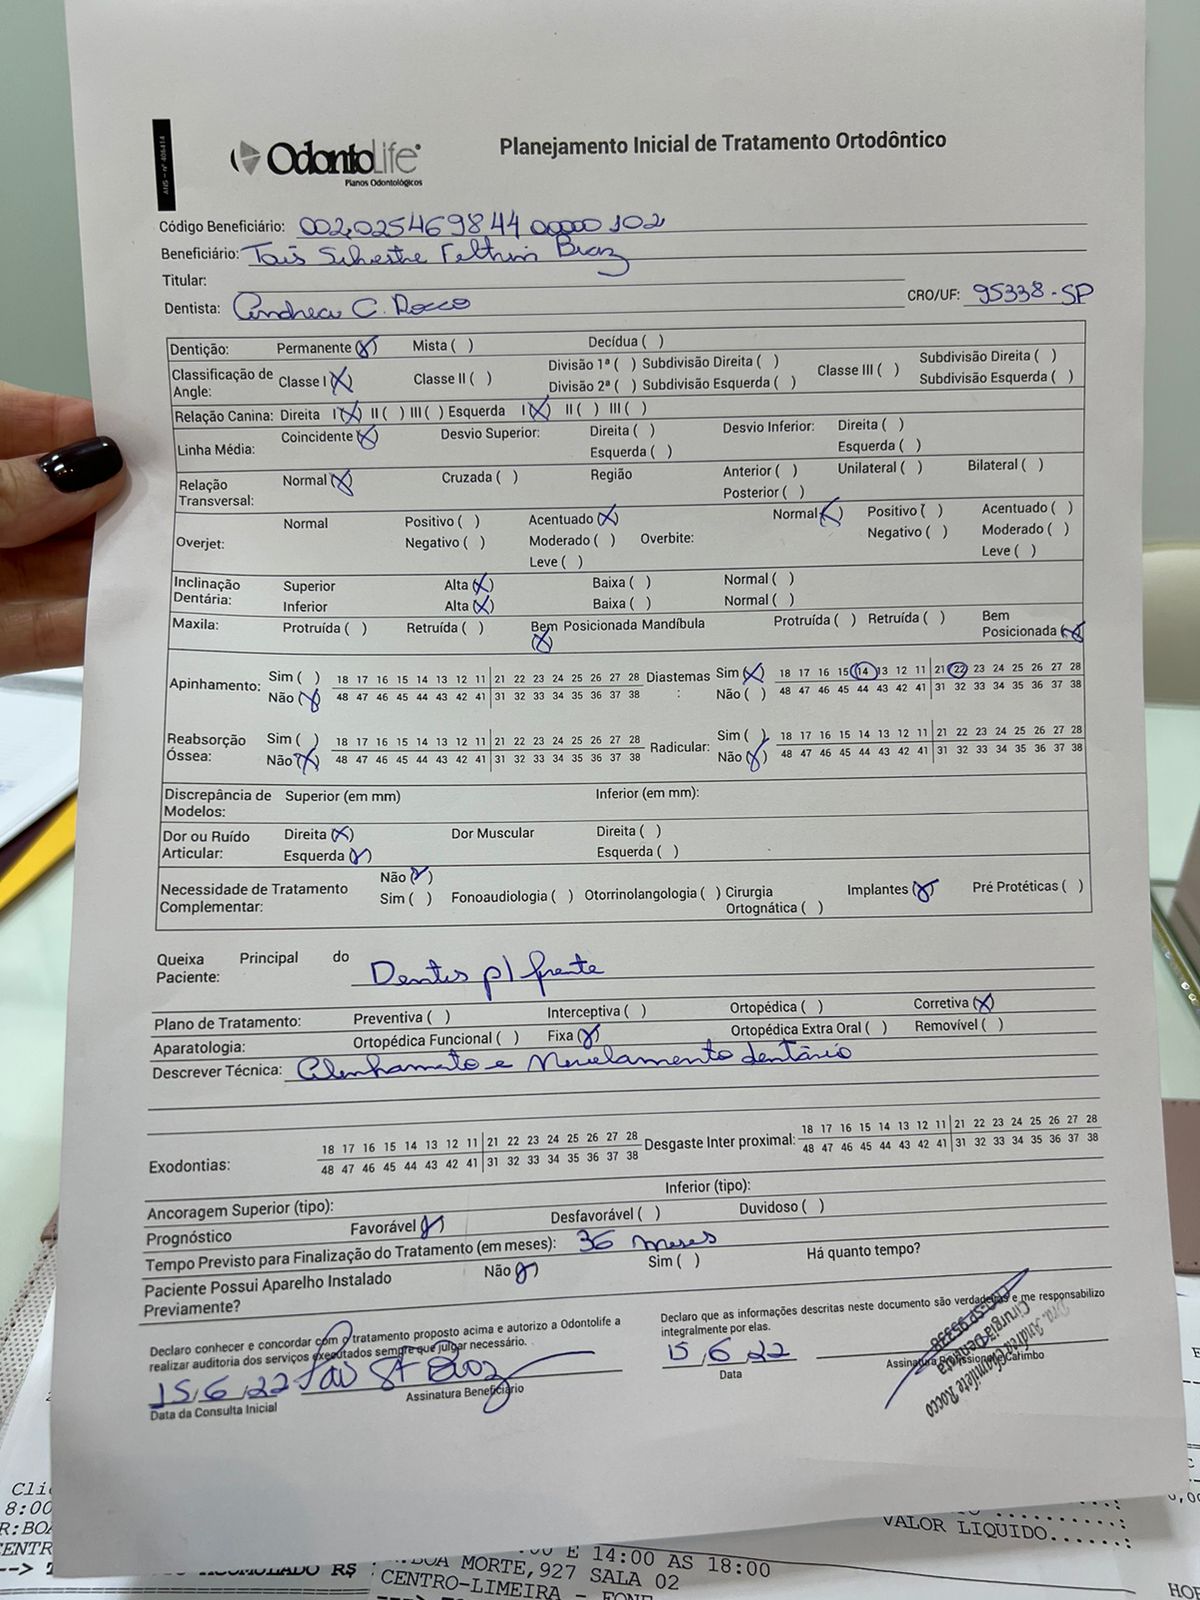 ANS - nº 406414
OdontoLife
Planos Odontológicos
Planejamento Inicial de Tratamento Ortodôntico
Código Beneficiário: 00202546984400000102
Beneficiário: Taís Silvestre Feltrin Braz
Titular:
Dentista: Andrea C. Rocco CRO/UF: 95338-SP
Dentição: Permanente (X) Mista ( ) Decídua ( )
Classificação de Angle: Classe I (X) Classe II ( ) Divisão 1ª ( ) Subdivisão Direita ( ) Classe III ( ) Subdivisão Direita ( )
Divisão 2ª ( ) Subdivisão Esquerda ( ) Subdivisão Esquerda ( )
Relação Canina: Direita I (X) II ( ) III ( ) Esquerda I (X) II ( ) III ( )
Linha Média: Coincidente (X) Desvio Superior: Direita ( ) Desvio Inferior: Direita ( )
Esquerda ( ) Esquerda ( )
Relação Transversal: Normal (X) Cruzada ( ) Região Anterior ( ) Unilateral ( ) Bilateral ( )
Posterior ( )
Overjet: Normal Positivo ( ) Acentuado (X) Overbite: Normal (X) Positivo ( ) Acentuado ( )
Negativo ( ) Moderado ( ) Negativo ( ) Moderado ( )
Leve ( ) Leve ( )
Inclinação Dentária: Superior Alta (X) Baixa ( ) Normal ( )
Inferior Alta (X) Baixa ( ) Normal ( )
Maxila: Protruída ( ) Retruída ( ) Bem Posicionada (X) Mandíbula Protruída ( ) Retruída ( ) Bem Posicionada (X)
Apinhamento: Sim ( ) 18 17 16 15 14 13 12 11 21 22 23 24 25 26 27 28 Diastemas: Sim (X) 18 17 16 15 14 13 12 11 21 22 23 24 25 26 27 28
Não (X) 48 47 46 45 44 43 42 41 31 32 33 34 35 36 37 38 Não ( ) 48 47 46 45 44 43 42 41 31 32 33 34 35 36 37 38
Reabsorção Óssea: Sim ( ) 18 17 16 15 14 13 12 11 21 22 23 24 25 26 27 28 Radicular: Sim ( ) 18 17 16 15 14 13 12 11 21 22 23 24 25 26 27 28
Não (X) 48 47 46 45 44 43 42 41 31 32 33 34 35 36 37 38 Não (X) 48 47 46 45 44 43 42 41 31 32 33 34 35 36 37 38
Discrepância de Modelos: Superior (em mm) Inferior (em mm):
Dor ou Ruído Articular: Direita (X) Dor Muscular Direita ( )
Esquerda (X) Esquerda ( )
Necessidade de Tratamento Complementar: Não (X)
Sim ( ) Fonoaudiologia ( ) Otorrinolangologia ( ) Cirurgia Ortognática ( ) Implantes (X) Pré Protéticas ( )
Queixa Principal do Paciente: Dentes p/ frente
Plano de Tratamento: Preventiva ( ) Interceptiva ( ) Ortopédica ( ) Corretiva (X)
Aparatologia: Ortopédica Funcional ( ) Fixa (X) Ortopédica Extra Oral ( ) Removível ( )
Descrever Técnica: Alinhamento e Nivelamento dentário
Exodontias: 18 17 16 15 14 13 12 11 21 22 23 24 25 26 27 28 Desgaste Inter proximal: 18 17 16 15 14 13 12 11 21 22 23 24 25 26 27 28
48 47 46 45 44 43 42 41 31 32 33 34 35 36 37 38 48 47 46 45 44 43 42 41 31 32 33 34 35 36 37 38
Ancoragem Superior (tipo): Inferior (tipo):
Prognóstico Favorável (X) Desfavorável ( ) Duvidoso ( )
Tempo Previsto para Finalização do Tratamento (em meses): 36 meses
Paciente Possui Aparelho Instalado Previamente? Não (X) Sim ( ) Há quanto tempo?
Declaro conhecer e concordar com o tratamento proposto acima e autorizo a Odontolife a
realizar auditoria dos serviços executados sempre que julgar necessário.
Declaro que as informações descritas neste documento são verdadeiras e me responsabilizo
integralmente por elas.
15/6/22
Data da Consulta Inicial
Assinatura Beneficiário
15/6/22
Data
Assinatura Profissional e Carimbo
Cirurgiã Dentista
CRO-SP 95338
8:00
E 14:00 AS 18:00
BOA MORTE,927 SALA 02
CENTRO-LIMEIRA - FONE
VALOR LIQUIDO......:
ACUMULADO R$